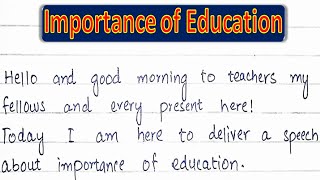 Importance of Education
Hello and good morning to teachers my
fellows and every present here!
Today I am here to deliver a speech
about importance of education.